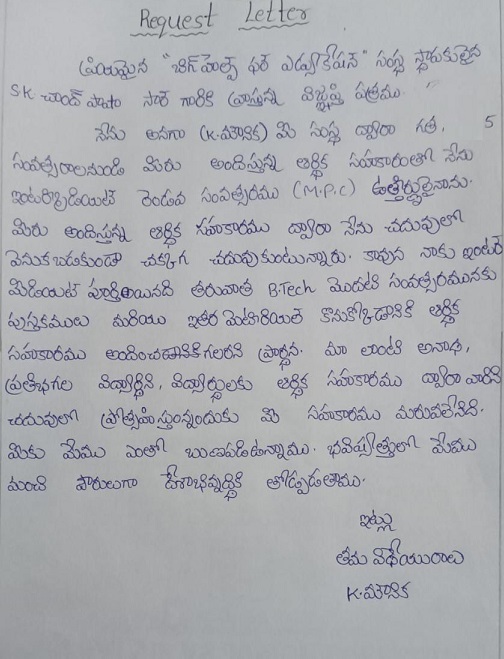 Request Letter
ప్రియమైన "బిగ్ హెల్ప్ ఫర్ ఎడ్యుకేషన్" సంస్థ స్థాపకులైన
SK చాంద్ పాషా సార్ గారికి వ్రాస్తున్న విజ్ఞప్తి పత్రము.
నేను అనగా (K.మౌనిక) మీ సంస్థ ద్వారా గత, 5
సంవత్సరాలనుండి మీరు అందిస్తున్న ఆర్థిక సహకారంతో నేను
ఇంటర్మీడియట్ రెండవ సంవత్సరము (M.P.C) ఉత్తీర్ణులైనాను.
మీరు అందిస్తున్న ఆర్థిక సహకారము ద్వారా నేను చదువులో
వెనుకబడకుండా చక్కగ చదువుకుంటున్నాను. కావున నాకు ఇంటర్
మీడియట్ పూర్తిఅయినది తరువాత B.Tech మొదటి సంవత్సరమునకు
పుస్తకములు మరియు ఇతర మెటీరియల్ కొనుక్కోడానికి ఆర్థిక
సహకారము అందించడానికిగలరని ప్రార్థన. మా లాంటి అనాథ,
ప్రతిభగల విద్యార్థిని, విద్యార్థులకు ఆర్థిక సహకారము ద్వారా వారిని
చదువులో ప్రోత్సహిస్తున్నందుకు మీ సహకారము మరువలేనిది.
మీకు మేము ఎంతో ఋణపడిఉన్నాము. భవిష్యత్తులో మేము
మంచి పౌరులుగా దేశాభివృద్ధికి తోడ్పడతాము.
ఇట్లు
తమ విధేయురాలు
K.మౌనిక